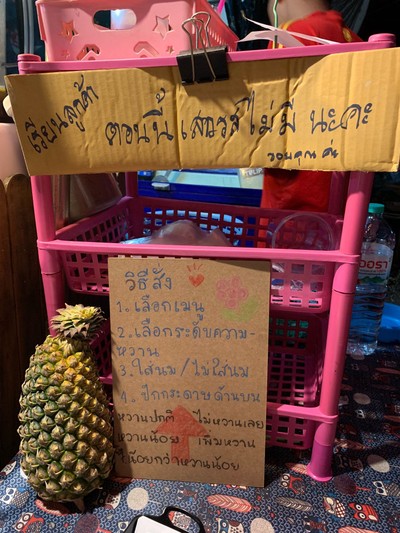 เรียนลูกค้า
ตอนนี้ เสาวรส ไม่มี นะคะ
ขอบคุณ ค่ะ
วิธีสั่ง
1. เลือกเมนู
2. เลือกระดับความ-
หวาน
3. ใส่นม / ไม่ใส่นม
4. ปักกระดาษด้านบน
หวานปกติ ไม่หวานเลย
หวานน้อย เพิ่มหวาน
น้อยกว่าหวานน้อย